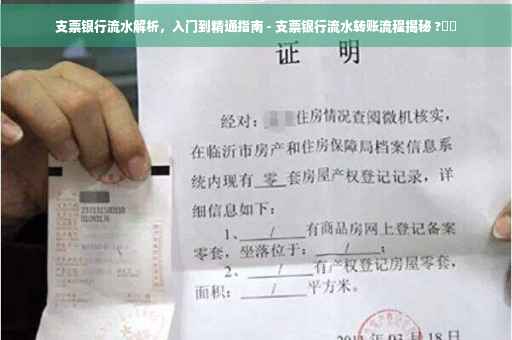 支票银行流水解析，入门到精通指南 - 支票银行流水转账流程揭秘 ?
证 明
经对：住房情况查阅微机核实，
在临沂市房产和住房保障局档案信息系
统内现有 零 套房屋产权登记记录，详
细信息如下：
1、 / 有商品房网上登记备案
零套，坐落位于： / ；
2、 / 有产权登记房屋零套，
面积： / 平方米。